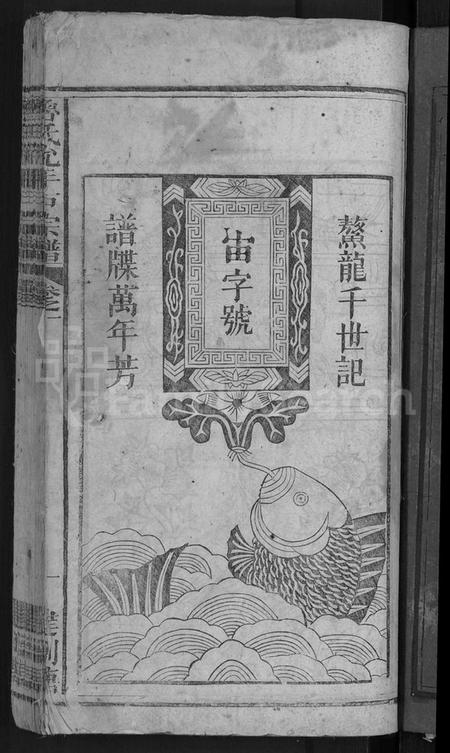 鰲龍千世記
宙字號
譜牒萬年芳
宗譜